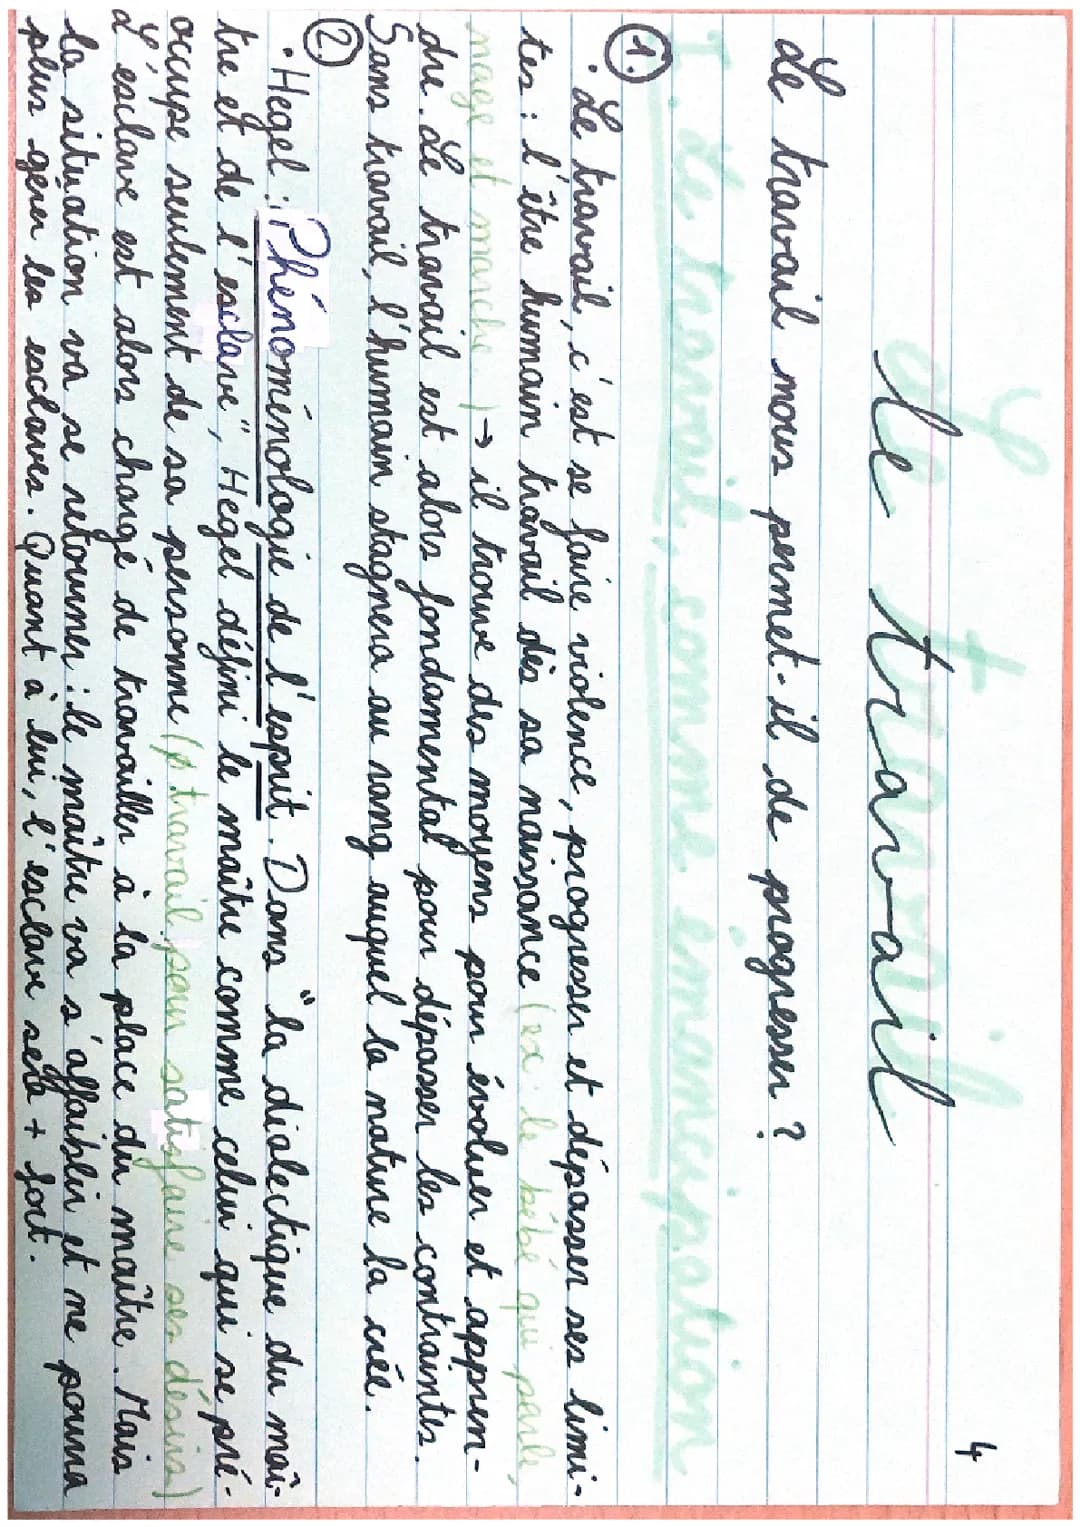 4
Le travail
Le travail nous permet-il de progresser ?
I. Le travail, comme émancipation
1.
• Le travail, c'est se faire violence, progresser et dépasser ses limi-
tes : l'être humain travail dès sa naissance (ex: le bébé qui parle,
nage et marche.) → il trouve des moyens pour évoluer et appren-
dre. Le travail est alors fondamental pour dépasser les contraintes.
Sans travail, l'humain stagnera au rang auquel la nature la créé.
2.
• Hegel : Phénoménologie de l'esprit. Dans "la dialectique du maî-
tre et de l'esclave", Hegel défini le maître comme celui qui se pré-
occupe seulement de sa personne (∅ travail pour satisfaire ses désirs)
L'esclave est alors chargé de travailler à la place du maître. Mais
la situation va se retourner : le maître va s'affaiblir et ne pourra
plus gérer les esclaves. Quant à lui, l'esclave sera + fort.